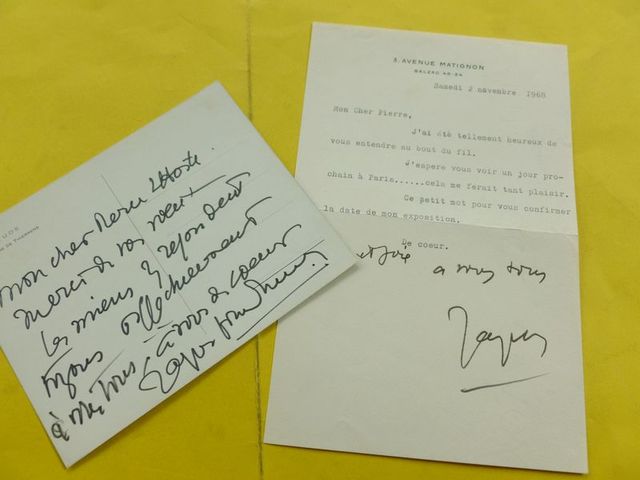 mon cher Pierre Lhoste.
merci de vos voeux
les miens y répondent
affectueusement
à vous de coeur
à vous tous
Jacques
3, AVENUE MATIGNON
BALZAC 40-24
Samedi 2 novembre 1968
Mon Cher Pierre,
J'ai été tellement heureux de
vous entendre au bout du fil.
J'espere vous voir un jour pro-
chain à Paris.....cela me ferait tant plaisir.
Ce petit mot pour vous confirmer
la date de mon exposition.
De coeur.
et Joie à vous tous
Jacques